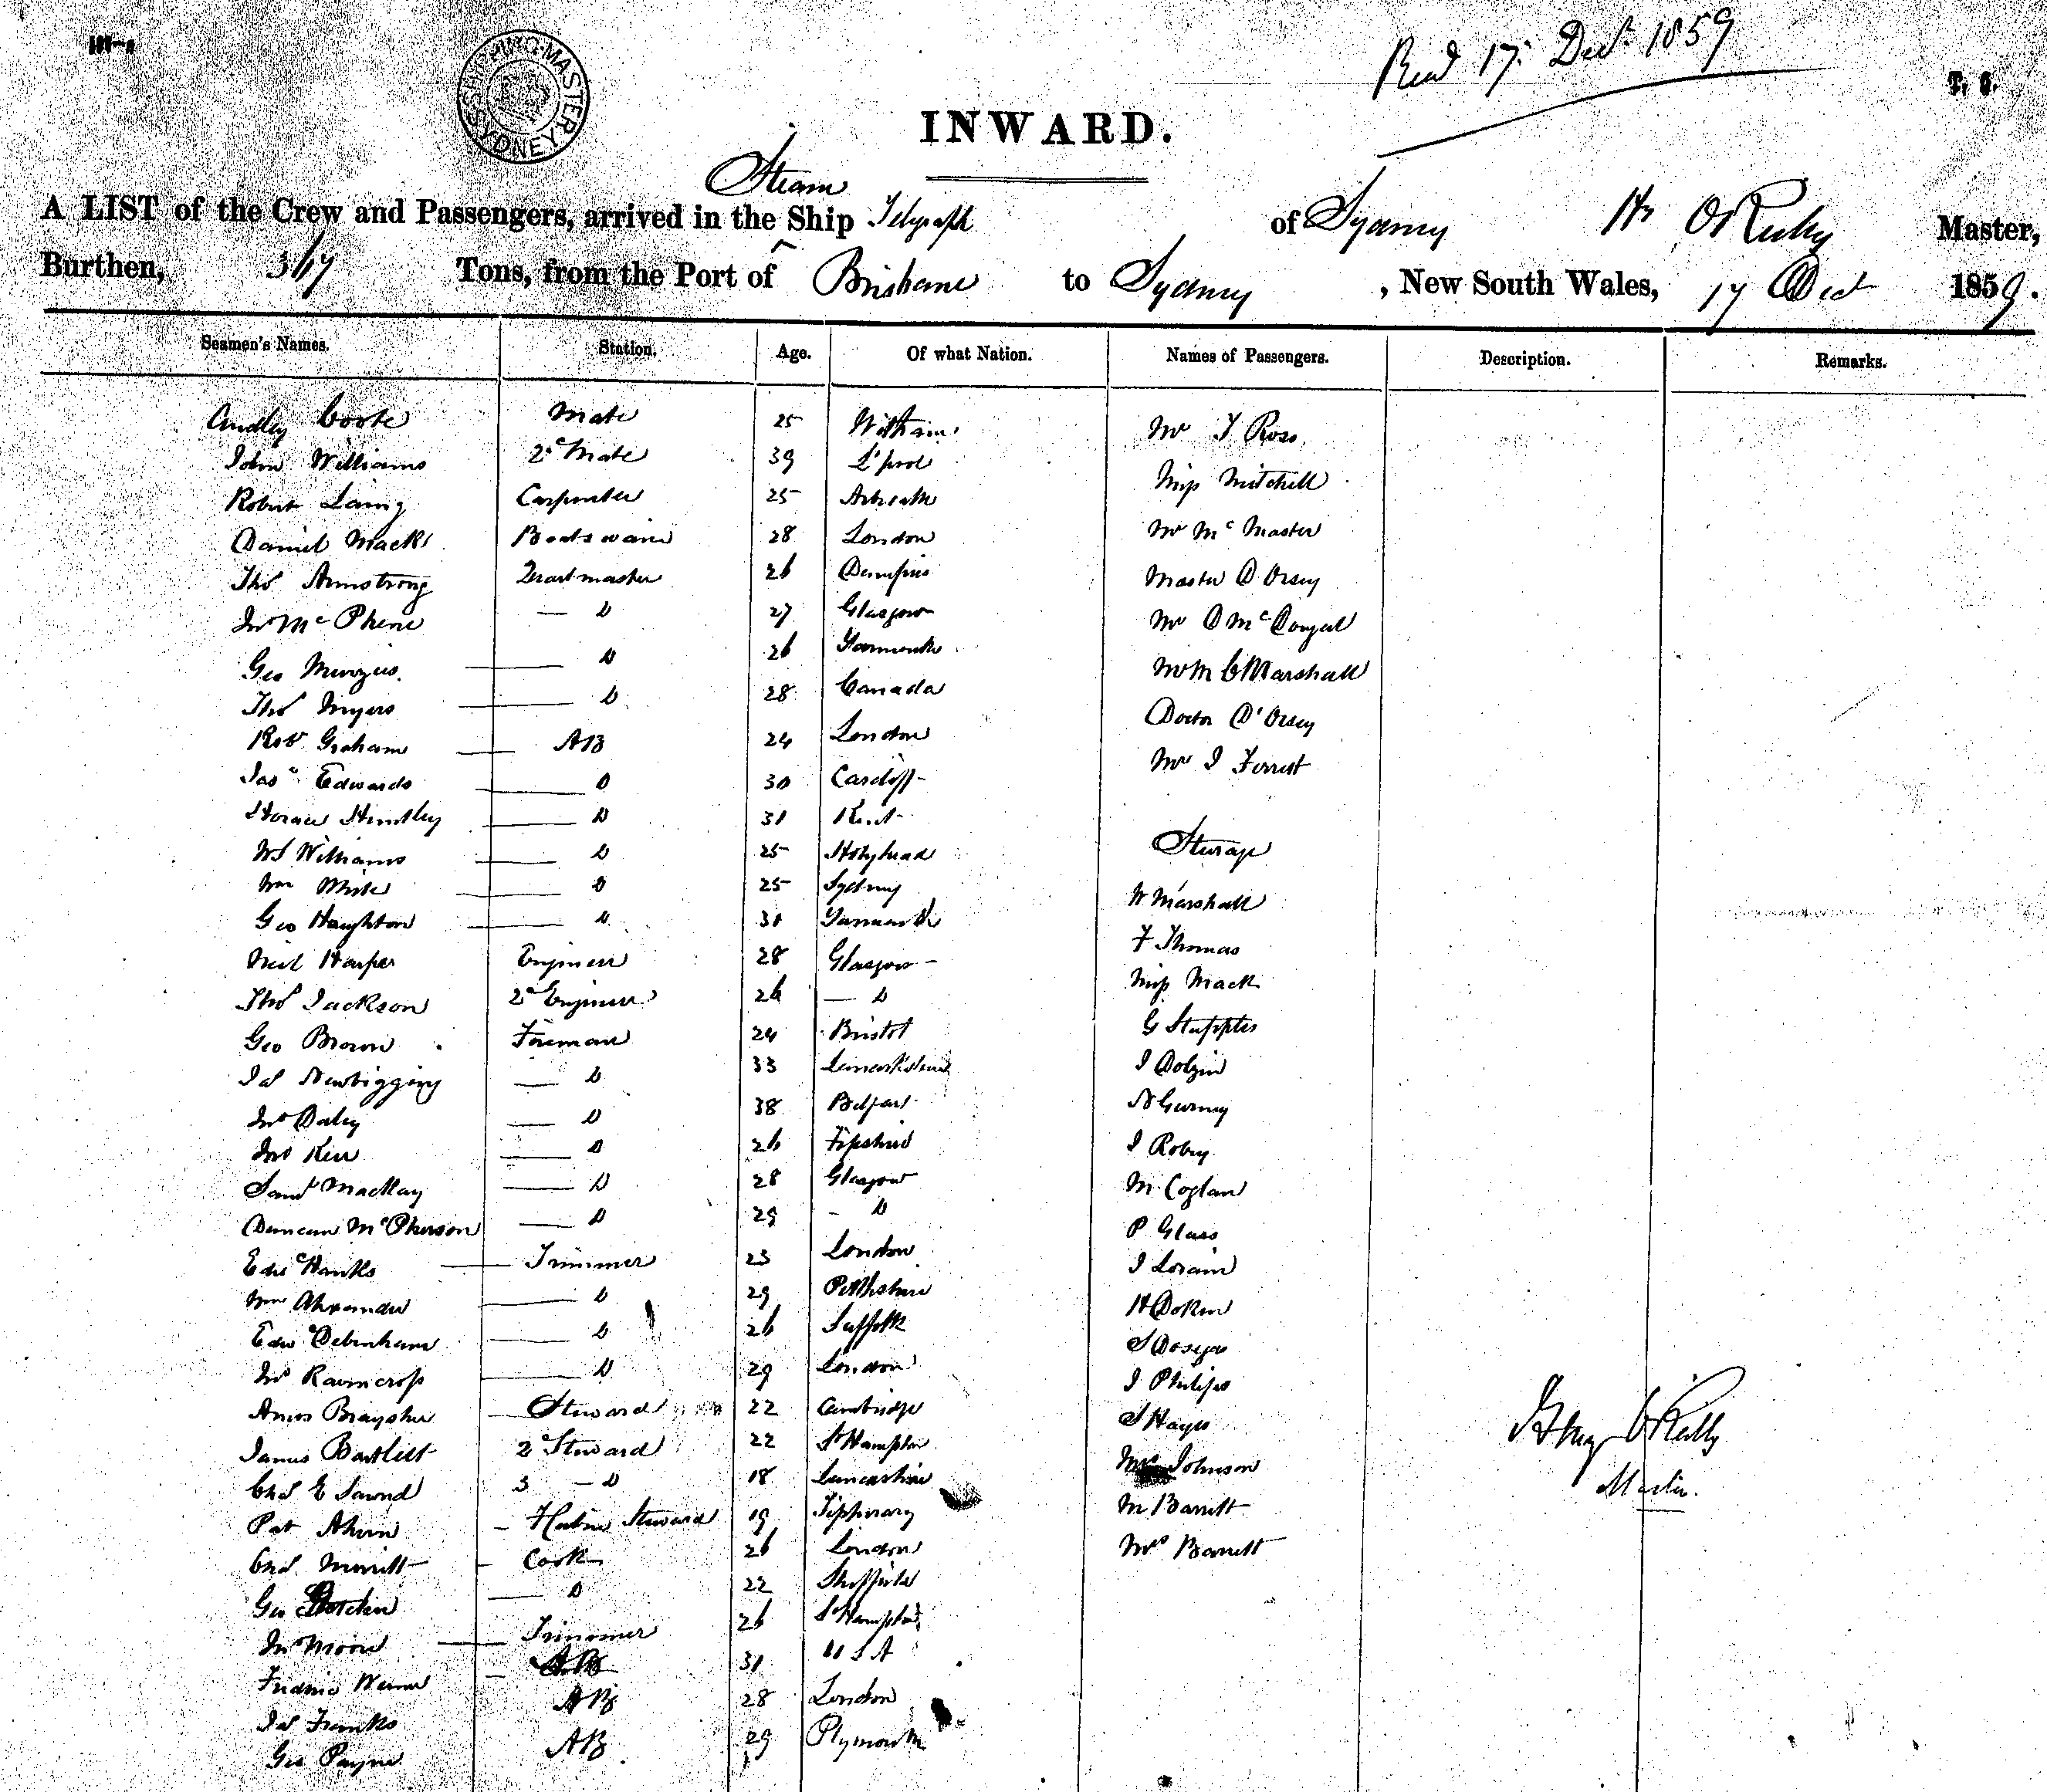 SHIPPING MASTER SYDNEY
Recd 17 Decr 1859
T. S.
INWARD.
Steam
A LIST of the Crew and Passengers, arrived in the Ship Telegraph of Sydney Hy O'Reilly Master,
Burthen, 367 Tons, from the Port of Brisbane to Sydney, New South Wales, 17 Decr 1859.
Seamen's Names. Station. Age. Of what Nation. Names of Passengers. Description. Remarks.
Audley Coote Mate 25 Witham Mr T Ross
John Williams 2d Mate 39 L'pool Miss Mitchell
Robert Laing Carpenter 25 Arbroath Mr McMaster
Daniel Mack Boatswain 28 London Master D'Orsey
Thos Armstrong Quartmaster 26 Dumfries Mr D McDougal
Jno McPhene — Do 27 Glasgow Mr M C Marshall
Geo — Do 26 Yarmouth Doctor D'Orsey
Thos Myers — Do 28 Canada Mr J Forrest
Robt Graham — AB 24 London
Jas Edwards — Do 30 Cardiff
Horace Huntley — Do 31 Kent Steerage
Ws Williams — Do 25 Holyhead W Marshall
Wm White — Do 25 Sydney F Thomas
Geo Haughton — Do 31 Yarmouth Miss Mack
Neil Harper Engineer 28 Glasgow G Stapples
Thos Jackson 2d Engineer 26 — Do J
Geo Brown Fireman 24 Bristol N Gurney
Jas Newbigging — Do 33 Lancashire J Robey
Jno Daley — Do 38 Belfast M Coglan
Jno Kerr — Do 26 Fifeshire P Glass
Saml Mackay — Do 28 Glasgow J Lorain
Duncan McPherson — Do 29 - Do H
Edwd Hanks — Trimmer 23 London S
Wm Alexander — Do 29 Perthshire J Philips
Edwd Debenham — Do 26 Suffolk S Hayes
Jno Ravincroft — Do 29 London Johnson
Amos Braysher — Steward 22 Cambridge M Barrett
James Bartlett 2d Steward 22 S'Hampton Mrs Barrett
Chas E 3 — Do 18 Lancashire
Pat Ahern — Steward 19 Tipperary
Chas Merritt - Cook 26 London
Geo — Do 22 Sheffield
Jno Moore — Trimmer 26 S'Hampton
Fredric Werner - AB 31 U S A
Jas Franks AB 28 London
Geo Payne AB 29 Plymouth
Henry O'Reilly
Master.